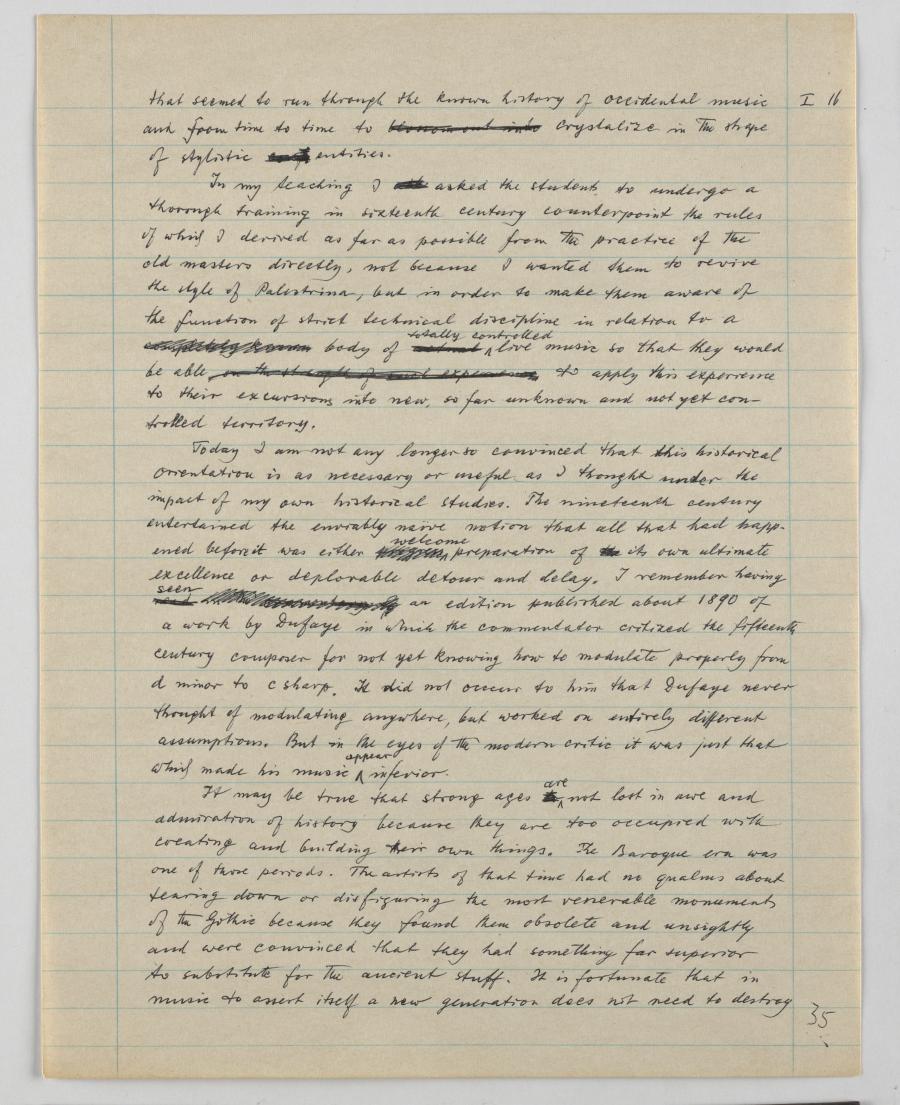 that seemed to run through the known history of occidental music I 16
and from time to time to blossom out into crystalize in the shape
of stylistic entities.
In my teaching I asked the students to undergo a
thorough training in sixteenth century counterpoint the rules
of which I derived as far as possible from the practice of the
old masters directly, not because I wanted them to revive
the style of Palestrina, but in order to make them aware of
the function of strict technical discipline in relation to a
totally controlled
completely known body of actual live music so that they would
be able, on the strength of such experience, to apply this experience
to their excursions into new, so far unknown and not yet con-
trolled territory.
Today I am not any longer so convinced that this historical
orientation is as necessary or useful as I thought under the
impact of my own historical studies. The nineteenth century
entertained the enviably naive notion that all that had happ-
welcome
ened before it was either preparation of its own ultimate
excellence or deplorable detour and delay. I remember having
seen
read an edition published about 1890 of
a work by Dufaye in which the commentator critized the fifteenth
century composer for not yet knowing how to modulate properly from
d minor to c sharp. It did not occur to him that Dufaye never
thought of modulating anywhere, but worked on entirely different
assumptions. But in the eyes of the modern critic it was just that
appear
which made his music inferior.
are
It may be true that strong ages not lost in awe and
admiration of history because they are too occupied with
creating and building their own things. The Baroque era was
one of those periods. The artists of that time had no qualms about
tearing down or disfiguring the most venerable monuments
of the Gothic because they found them obsolete and unsightly
and were convinced that they had something far superior
to substitute for the ancient stuff. It is fortunate that in
music to assert itself a new generation does not need to destroy
35